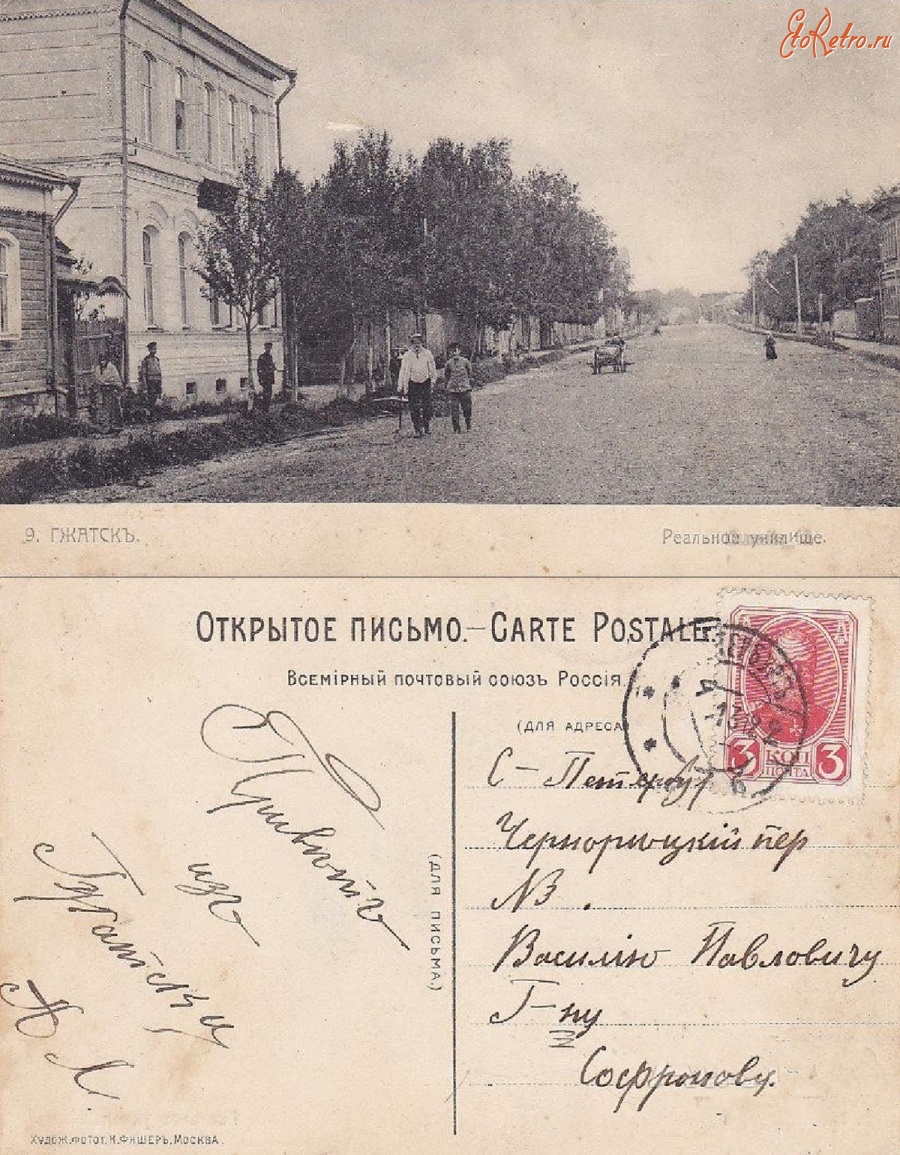 EtoRetro.ru
9. ГЖАТСКЪ.
Реальное училище.
ОТКРЫТОЕ ПИСЬМО.—CARTE POSTALE.
ВСЕМІРНЫЙ ПОЧТОВЫЙ СОЮЗЪ РОССІЯ.
(ДЛЯ АДРЕСА)
3 КОП 3
ПОЧТА
С-Петербур
Чернорѣцкій пер
№3.
Василію Павловичу
Г-ну
Софронову.
(ДЛЯ ПИСЬМА.)
Привѣтъ
изъ
Гжатска
ХУДОЖ.ФОТОТ.К.ФИШЕРЪ, МОСКВА.